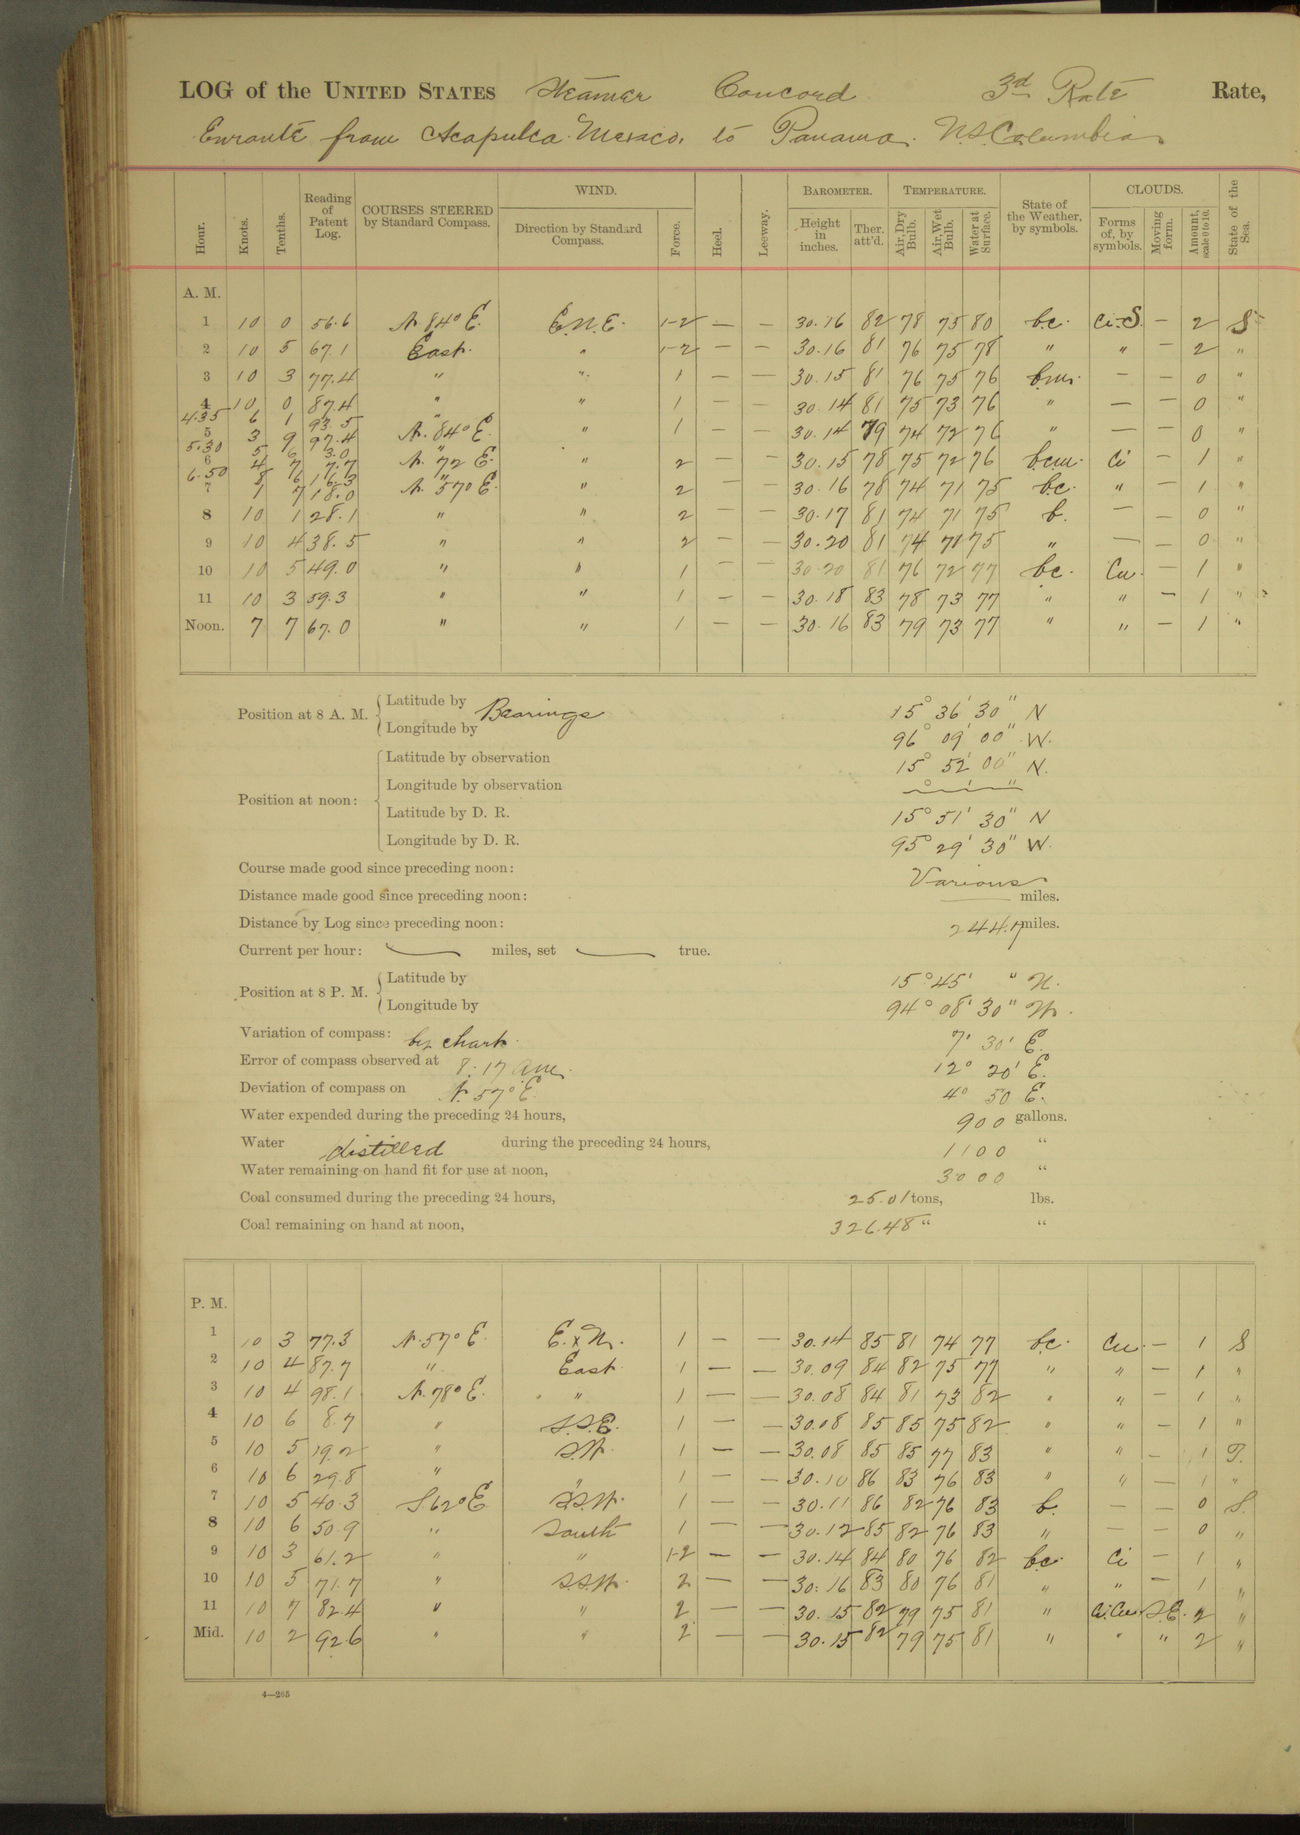 LOG of the UNITED STATES Steamer Concord 3rd Rate Rate,
Enroute from Acapulca Mexico, to Panama. U.S. Columbia
Hour. Knots. Tenths. Reading of Patent Log. COURSES STEERED by Standard Compass. WIND. Direction by Standard Compass. Force. Heel. Leeway. BAROMETER. Height in inches. Ther. att'd. TEMPERATURE. Air, Dry Bulb. Air, Wet Bulb. Water at Surface. State of the Weather, by symbols. CLOUDS. Forms of, by symbols. Moving form. Amount, scale 0 to 10. State of the Sea.
A. M.
1 10 0 56.6 N. 84° E. E.N.E. 1-2 — — 30.16 82 78 75 80 bc. Ci.-S. — 2 S
2 10 5 67.1 East. " 1-2 — — 30.16 81 76 75 78 " " — 2 "
3 10 3 77.4 " " 1 — — 30.15 81 76 75 76 b.m. — — 0 "
4 10 0 87.4 " " 1 — — 30.14 81 75 73 76 " — — 0 "
4.35 6 1 93.5 "
5 3 9 97.4 N. 84° E. " 1 — — 30.14 79 74 72 76 " — — 0 "
5.30 5 6 3.0 "
6 4 7 7.7 N. 72 E. " 2 — — 30.15 78 75 72 76 bcm. Ci — 1 "
6.50 8 6 16.3 "
7 1 7 18.0 N. 57° E. " 2 — — 30.16 78 74 71 75 bc. " — 1 "
8 10 1 28.1 " " 2 — — 30.17 81 74 71 75 b. — — 0 "
9 10 4 38.5 " " 2 — — 30.20 81 74 71 75 " — — 0 "
10 10 5 49.0 " " 1 — — 30.20 81 76 72 77 bc. Cu. — 1 "
11 10 3 59.3 " " 1 — — 30.18 83 78 73 77 " " — 1 "
Noon. 7 7 67.0 " " 1 — — 30.16 83 79 73 77 " " — 1 "
Position at 8 A. M. Latitude by Bearings 15° 36' 30" N
Longitude by 96° 09' 00" W.
Position at noon: Latitude by observation 15° 52' 00" N.
Longitude by observation ° ' "
Latitude by D. R. 15° 51' 30" N
Longitude by D. R. 95° 29' 30" W.
Course made good since preceding noon: Various
Distance made good since preceding noon: — miles.
Distance by Log since preceding noon: 244.7 miles.
Current per hour: — miles, set — true.
Position at 8 P. M. Latitude by 15° 45' " N.
Longitude by 94° 08' 30" W.
Variation of compass: by chart. 7° 30' E.
Error of compass observed at 8.17 am. 12° 20' E.
Deviation of compass on N. 57° E. 4° 50 E.
Water expended during the preceding 24 hours, 900 gallons.
Water distilled during the preceding 24 hours, 1100 "
Water remaining on hand fit for use at noon, 3000 "
Coal consumed during the preceding 24 hours, 25.01 tons, lbs.
Coal remaining on hand at noon, 326.48 " "
P. M.
1 10 3 77.3 N. 57° E. E. x N. 1 — — 30.14 85 81 74 77 bc. Cu. — 1 S
2 10 4 87.7 " East 1 — — 30.09 84 82 75 77 " " — 1 "
3 10 4 98.1 N. 78° E. " 1 — — 30.08 84 81 73 82 " " — 1 "
4 10 6 8.7 " S.S.E. 1 — — 30.08 85 85 75 82 " " — 1 "
5 10 5 19.2 " S.W. 1 — — 30.08 85 85 77 83 " " — 1 T.
6 10 6 29.8 " " 1 — — 30.10 86 83 76 83 " " — 1 "
7 10 5 40.3 S 62° E S.S.W. 1 — — 30.11 86 82 76 83 b. — — 0 S.
8 10 6 50.9 " South 1 — — 30.12 85 82 76 83 " — — 0 "
9 10 3 61.2 " " 1-2 — — 30.14 84 80 76 82 bc. Ci — 1 "
10 10 5 71.7 " S.S.W. 2 — — 30.16 83 80 76 81 " " — 1 "
11 10 7 82.4 " " 2 — — 30.15 82 79 75 81 " Ci.Cu. S.E. 2 "
Mid. 10 2 92.6 " " 2 — — 30.15 82 79 75 81 " " " 2 "
4—265